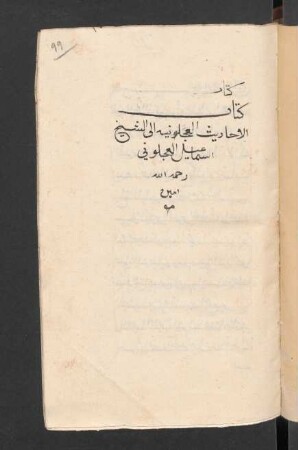 99
كتاب
كتاب
الاحاديث العجلونيه الى الشيخ
اسماعيل العجلوني
رحمه الله
امين